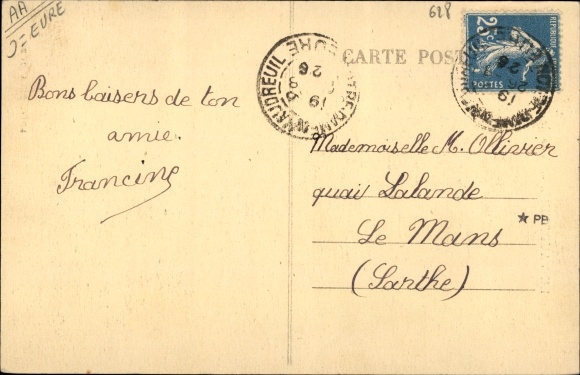 AA
J= EURE
628
CARTE POST
25c
REPUBLIQUE
POSTES
NOTRE-DAME DU VAUDREUIL
EURE
19
26
Bons baisers de ton
amie
Francine
Mademoiselle M. Ollivier
quai Lalande
Le Mans
(Sarthe)
★ PB